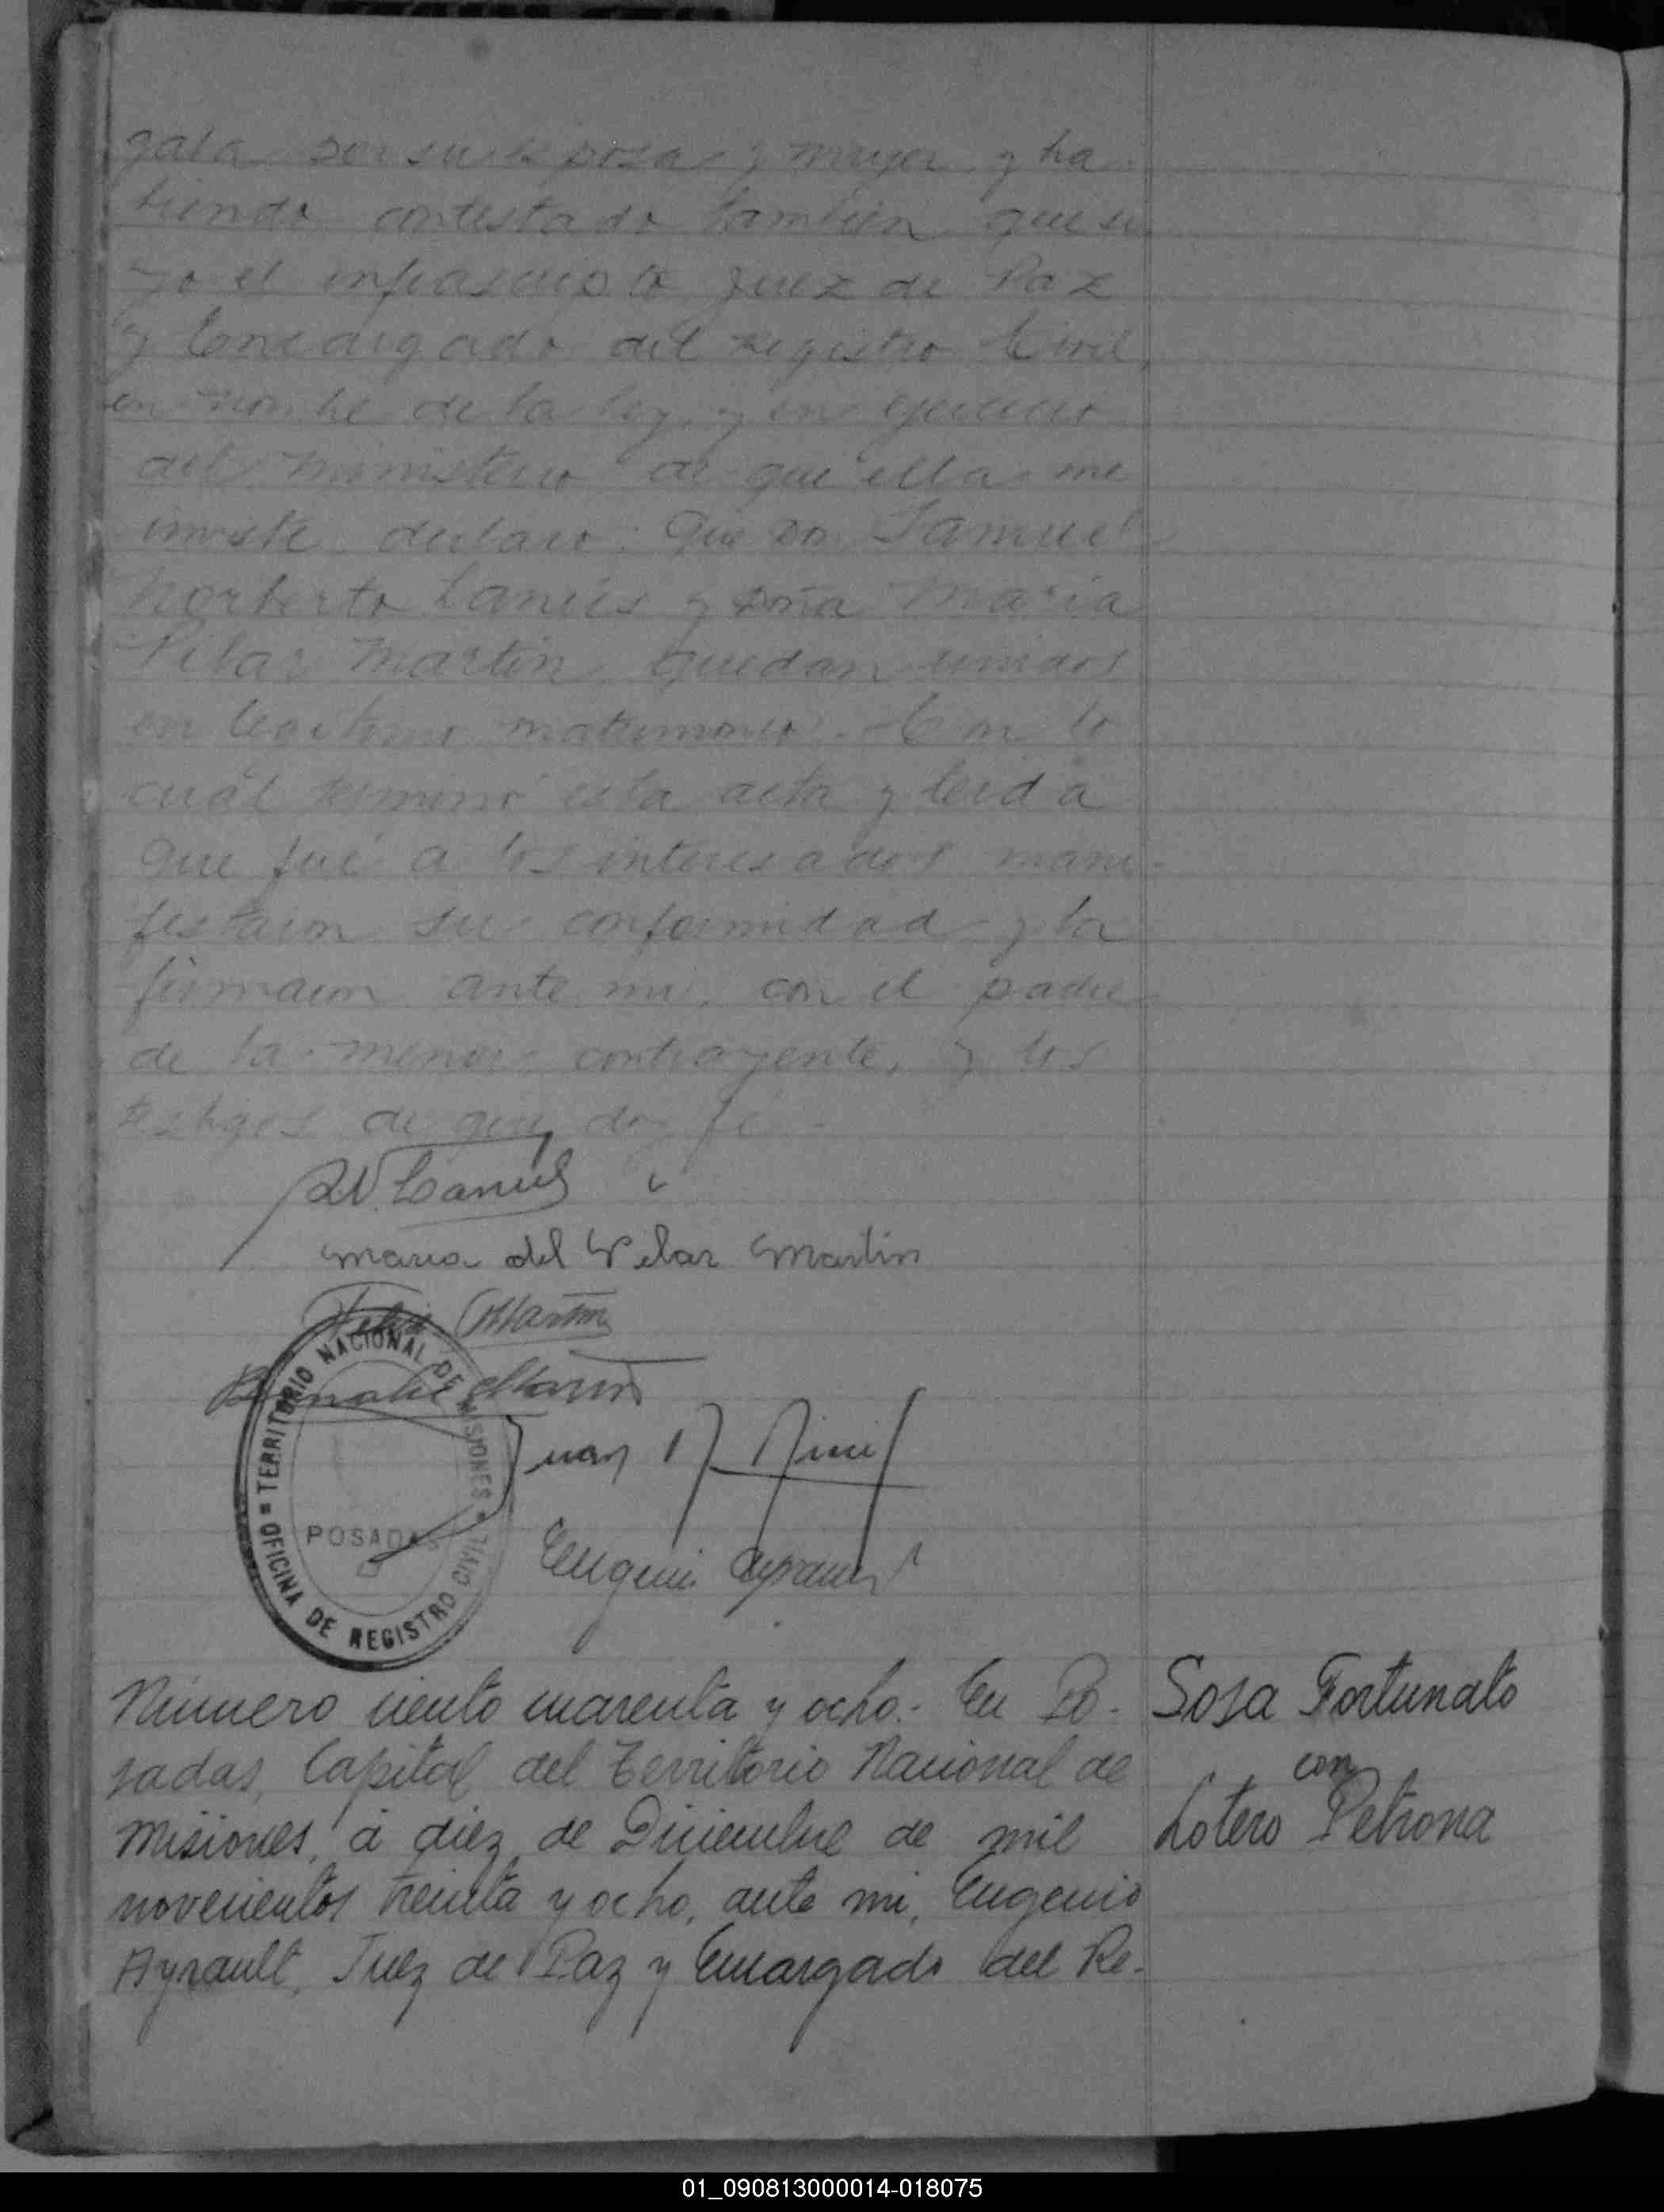 garla por su esposa y mujer y ha
biendo contestado tambien que si
yo el infrascripto Juez de Paz
y Encargado del Registro Civil,
en nombe de la ley y en ejercicio
del ministerio de que ella me
inviste declaro: Que Don Samuel
Norberto Lanús y Doña María
Pilar Martin, quedan unidos
en legitimo matrimonio. Con lo
cuál terminó esta acta y leida
que fué a los interesados mani-
festaron su conformidad y la
firmaron ante mi, con el padre
de la menor contrayente, y los
testigos de que doy fé.-
Lanús
Maria del Pilar Martin
Felix Martin
Juan
Eugenio Ayrault
OFICINA DE REGISTRO CIVIL = TERRITORIO NACIONAL DE MISIONES
POSADAS
Número ciento cuarenta y ocho.- En Po-
sadas, Capital del Territorio Nacional de
Misiones, á diez de Diciembre de mil
novecientos treinta y ocho, ante mi, Eugenio
Ayrault, Juez de Paz y Encargado del Re-
Sosa Fortunato
con
Lotero Petrona
01_090813000014-018075